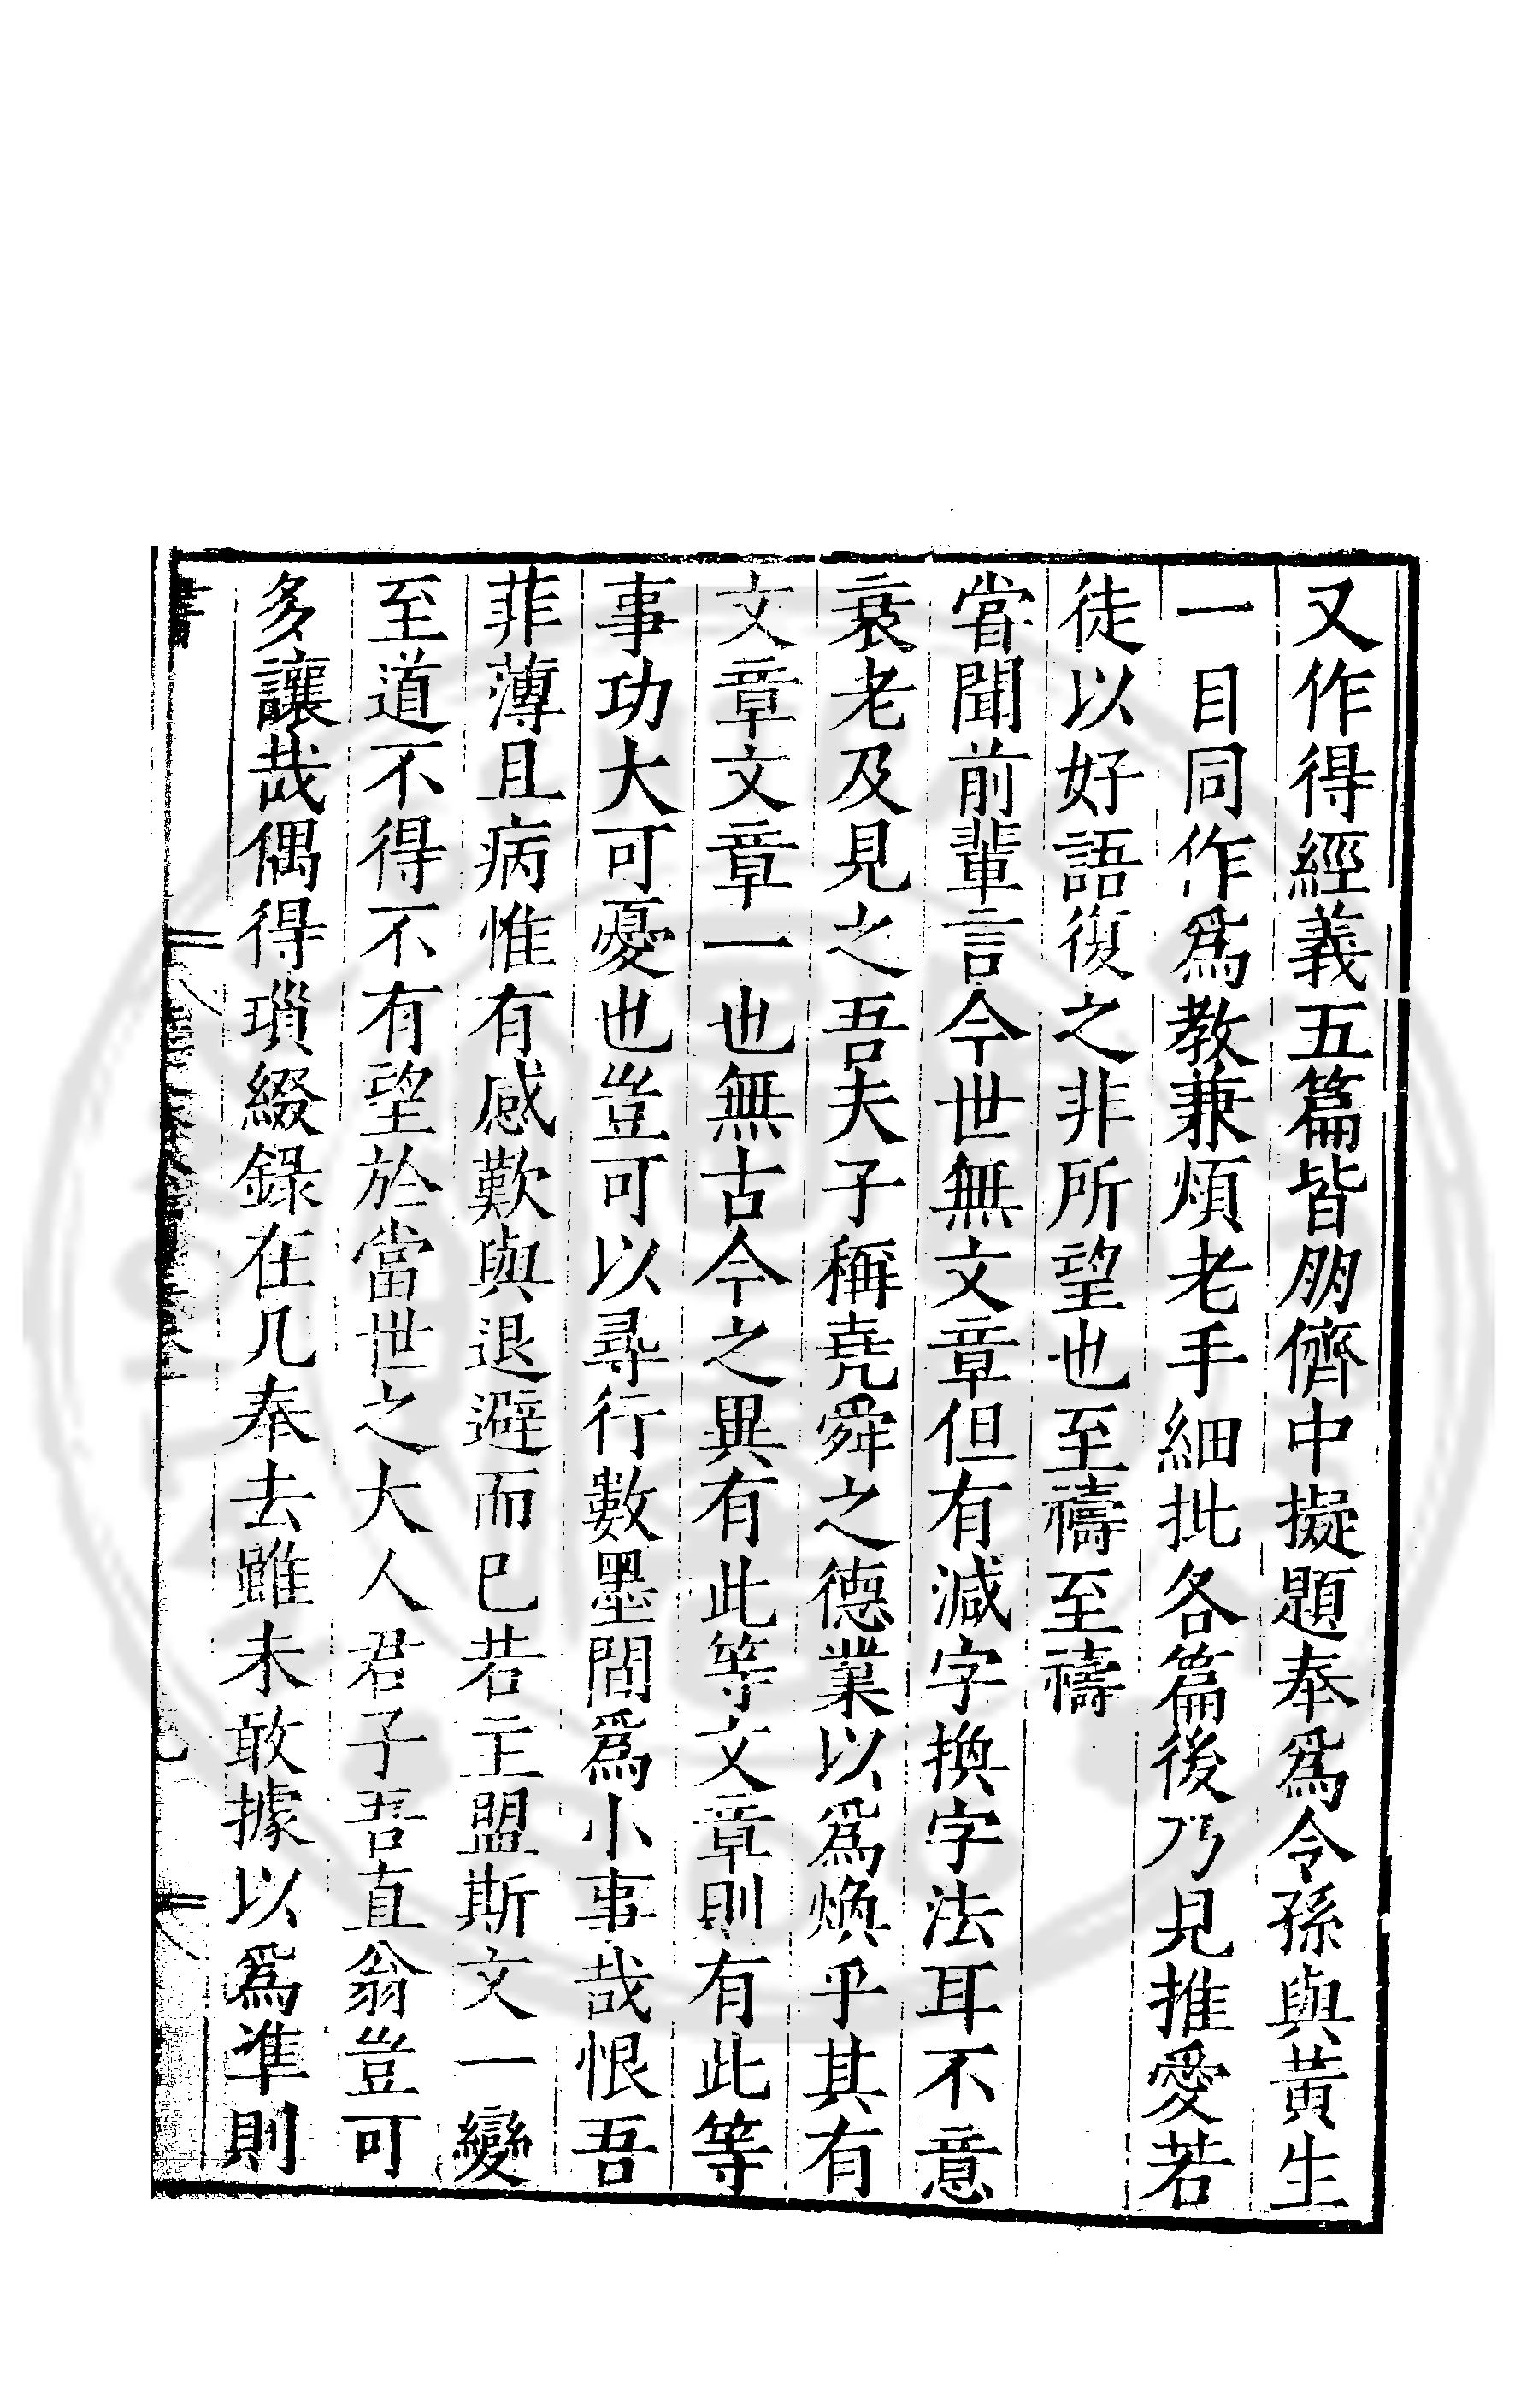 又作得經義五篇皆朋儕中擬題奉爲令孫與黃生
一目同作爲教兼煩老手細批各篇後乃見推愛若
徒以好語復之非所望也至禱至禱
嘗聞前輩言今世無文章但有減字換字法耳不意
衰老及見之吾夫子稱堯舜之德業以爲煥乎其有
文章文章一也無古今之異有此等文章則有此等
事功大可憂也豈可以尋行數墨間爲小事哉恨吾
菲薄且病惟有感歎與退避而已若主盟斯文一變
至道不得不有望於當世之大人君子吾直翁豈可
多讓哉偶得瑣綴錄在几奉去雖未敢據以爲準則